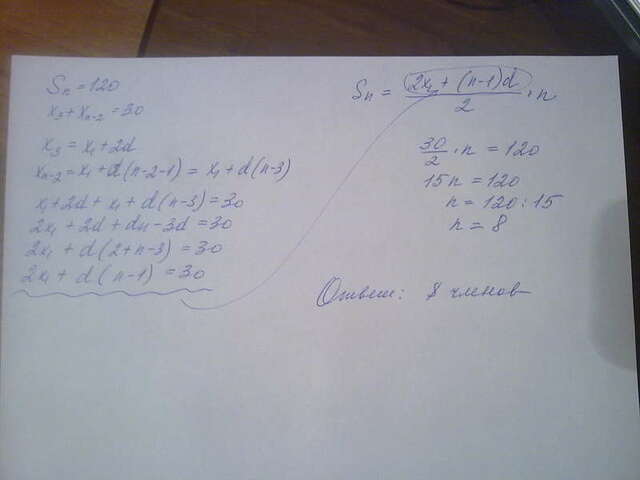 Sn = 120
x3 + xn-2 = 30
x3 = x1 + 2d
xn-2 = x1 + d(n-2-1) = x1 + d(n-3)
x1 + 2d + x1 + d(n-3) = 30
2x1 + 2d + dn - 3d = 30
2x1 + d(2+n-3) = 30
2x1 + d(n-1) = 30
Sn = (2x1 + (n-1)d)/2 · n
30/2 · n = 120
15n = 120
n = 120 : 15
n = 8
Ответ: 8 членов